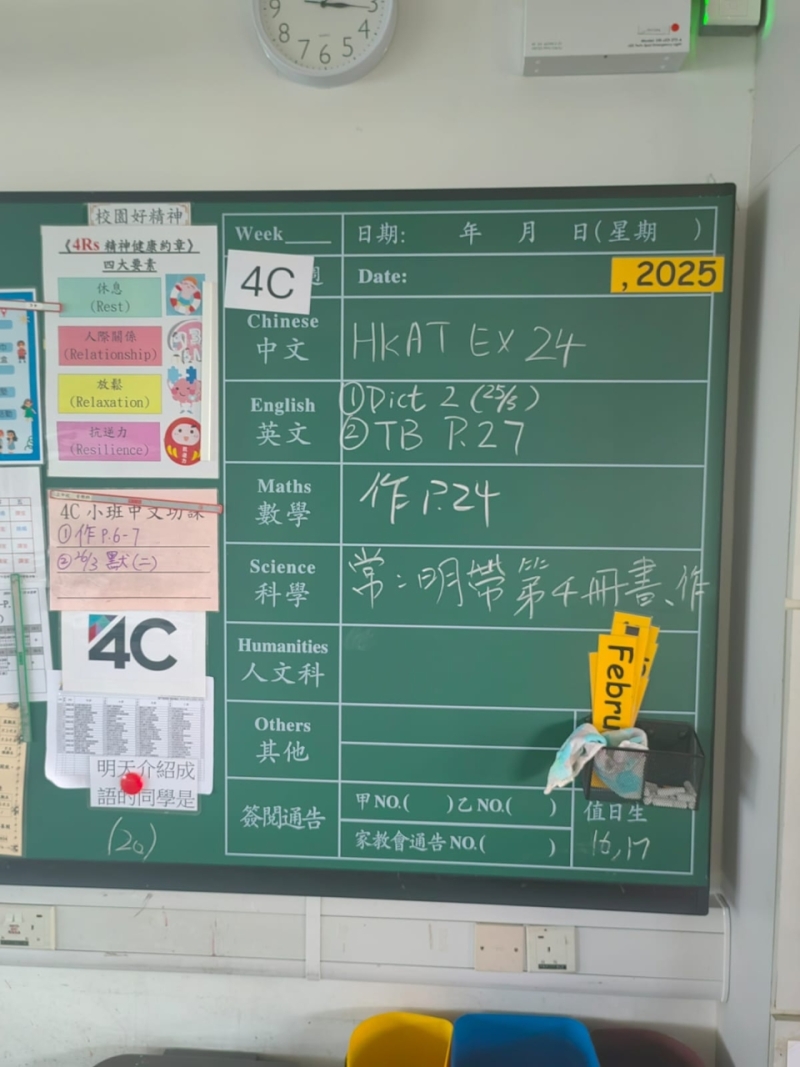 9
3
8
7 6 5 4
校園好精神
《4Rs 精神健康約章》
四大要素
休息
(Rest)
人際關係
(Relationship)
放鬆
(Relaxation)
抗逆力
(Resilience)
4C 小班中文功課
①作 P.6-7
②26/3 默(二)
4C
明天介紹成
語的同學是
(20)
Week____
日期: 年 月 日(星期 )
4C
週
Date:
, 2025
Chinese
中文
HKAT EX 24
English
英文
①Dict 2 (25/3)
②TB P.27
Maths
數學
作 P.24
Science
科學
常:明帶第4冊書、作
Humanities
人文科
Febru
Others
其他
簽閱通告
甲NO.( )乙NO.( )
家教會通告NO.( )
值日生
16,17